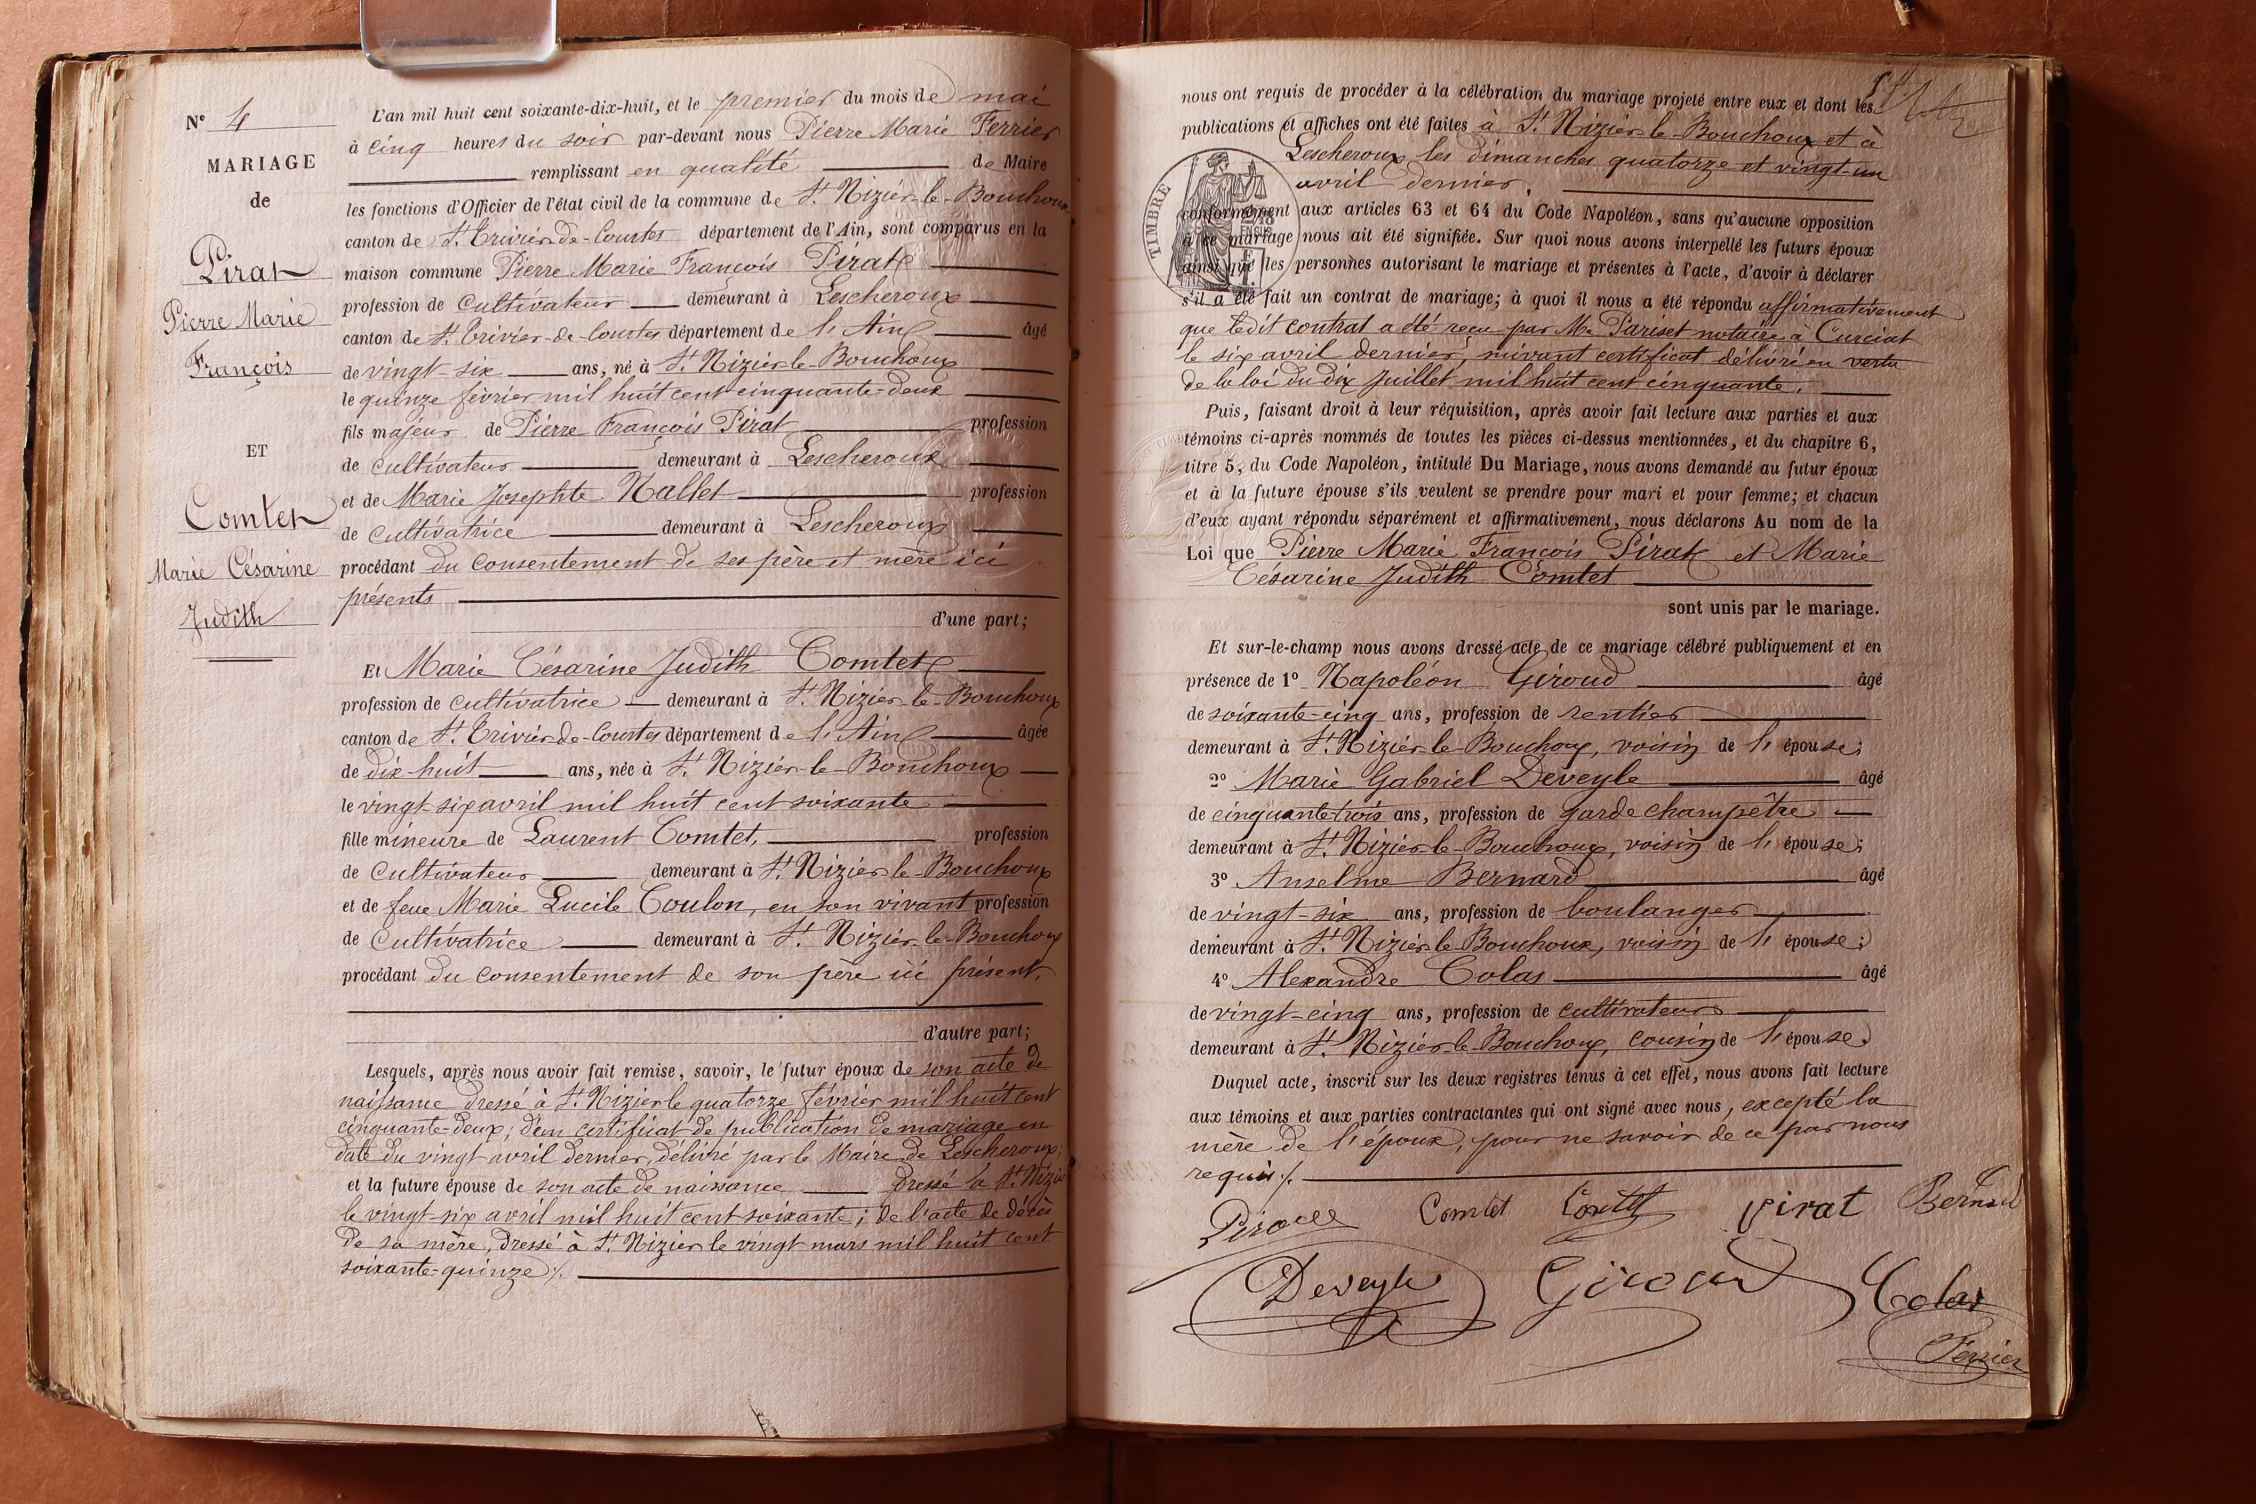 N° 4
MARIAGE
de
Pirat
Pierre Marie
François
ET
Comtet
Marie Césarine
Judith
L'an mil huit cent soixante-dix-huit, et le premier du mois de mai
à cinq heures du soir par-devant nous Pierre Marie Ferrier
remplissant en qualité de Maire
les fonctions d'Officier de l'état civil de la commune de St Nizier-le-Bouchoux
canton de St Trivier-de-Courtes département de l'Ain, sont comparus en la
maison commune Pierre Marie François Pirat
profession de cultivateur demeurant à Lescheroux
canton de St Trivier-de-Courtes département de l'Ain âgé
de vingt-six ans, né à St Nizier-le-Bouchoux
le quinze février mil huit cent cinquante-deux
fils majeur de Pierre François Pirat profession
de cultivateur demeurant à Lescheroux
et de Marie Josephte Nallet profession
de cultivatrice demeurant à Lescheroux
procédant du consentement de ses père et mère ici
présents
d'une part;
Et Marie Césarine Judith Comtet
profession de cultivatrice demeurant à St Nizier-le-Bouchoux
canton de St Trivier-de-Courtes département de l'Ain âgée
de dix-huit ans, née à St Nizier-le-Bouchoux
le vingt-six avril mil huit cent soixante
fille mineure de Laurent Comtet, profession
de cultivateur demeurant à St Nizier-le-Bouchoux
et de feue Marie Lucile Coulon, en son vivant profession
de cultivatrice demeurant à St Nizier-le-Bouchoux
procédant du consentement de son père ici présent,
d'autre part;
Lesquels, après nous avoir fait remise, savoir, le futur époux de son acte de
naissance dressé à St Nizier le quatorze février mil huit cent
cinquante-deux; d'un certificat de publication de mariage en
date du vingt avril dernier, délivré par le Maire de Lescheroux;
et la future épouse de son acte de naissance dressé à St Nizier
le vingt-six avril mil huit cent soixante; de l'acte de décès
de sa mère, dressé à St Nizier le vingt mars mil huit cent
soixante-quinze ./.
nous ont requis de procéder à la célébration du mariage projeté entre eux et dont les
publications et affiches ont été faites à St Nizier-le-Bouchoux et à
Lescheroux les dimanches quatorze et vingt-un
avril dernier,
TIMBRE
conformément aux articles 63 et 64 du Code Napoléon, sans qu'aucune opposition
à ce mariage nous ait été signifiée. Sur quoi nous avons interpellé les futurs époux
ainsi que les personnes autorisant le mariage et présentes à l'acte, d'avoir à déclarer
s'il a été fait un contrat de mariage; à quoi il nous a été répondu affirmativement
que ledit contrat a été reçu par Me Pariset notaire à Curciat
le six avril dernier, suivant certificat délivré en vertu
de la loi du dix Juillet mil huit cent cinquante.
Puis, faisant droit à leur réquisition, après avoir fait lecture aux parties et aux
témoins ci-après nommés de toutes les pièces ci-dessus mentionnées, et du chapitre 6,
titre 5, du Code Napoléon, intitulé Du Mariage, nous avons demandé au futur époux
et à la future épouse s'ils veulent se prendre pour mari et pour femme; et chacun
d'eux ayant répondu séparément et affirmativement, nous déclarons Au nom de la
Loi que Pierre Marie François Pirat et Marie
Césarine Judith Comtet
sont unis par le mariage.
Et sur-le-champ nous avons dressé acte de ce mariage célébré publiquement et en
présence de 1° Napoléon Giroud âgé
de soixante-cinq ans, profession de rentier
demeurant à St Nizier-le-Bouchoux, voisin de l'épouse;
2° Marie Gabriel Deveyle âgé
de cinquante-trois ans, profession de garde champêtre
demeurant à St Nizier-le-Bouchoux, voisin de l'épouse;
3° Anselme Bernard âgé
de vingt-six ans, profession de boulanger
demeurant à St Nizier-le-Bouchoux, voisin de l'épouse;
4° Alexandre Colas âgé
de vingt-cinq ans, profession de cultivateur
demeurant à St Nizier-le-Bouchoux, cousin de l'épouse.
Duquel acte, inscrit sur les deux registres tenus à cet effet, nous avons fait lecture
aux témoins et aux parties contractantes qui ont signé avec nous, excepté la
mère de l'époux, pour ne savoir de ce par nous
requis ./.
Comtet Comtet Pirat Bernard
Deveyle Giroud Colas
Ferrier